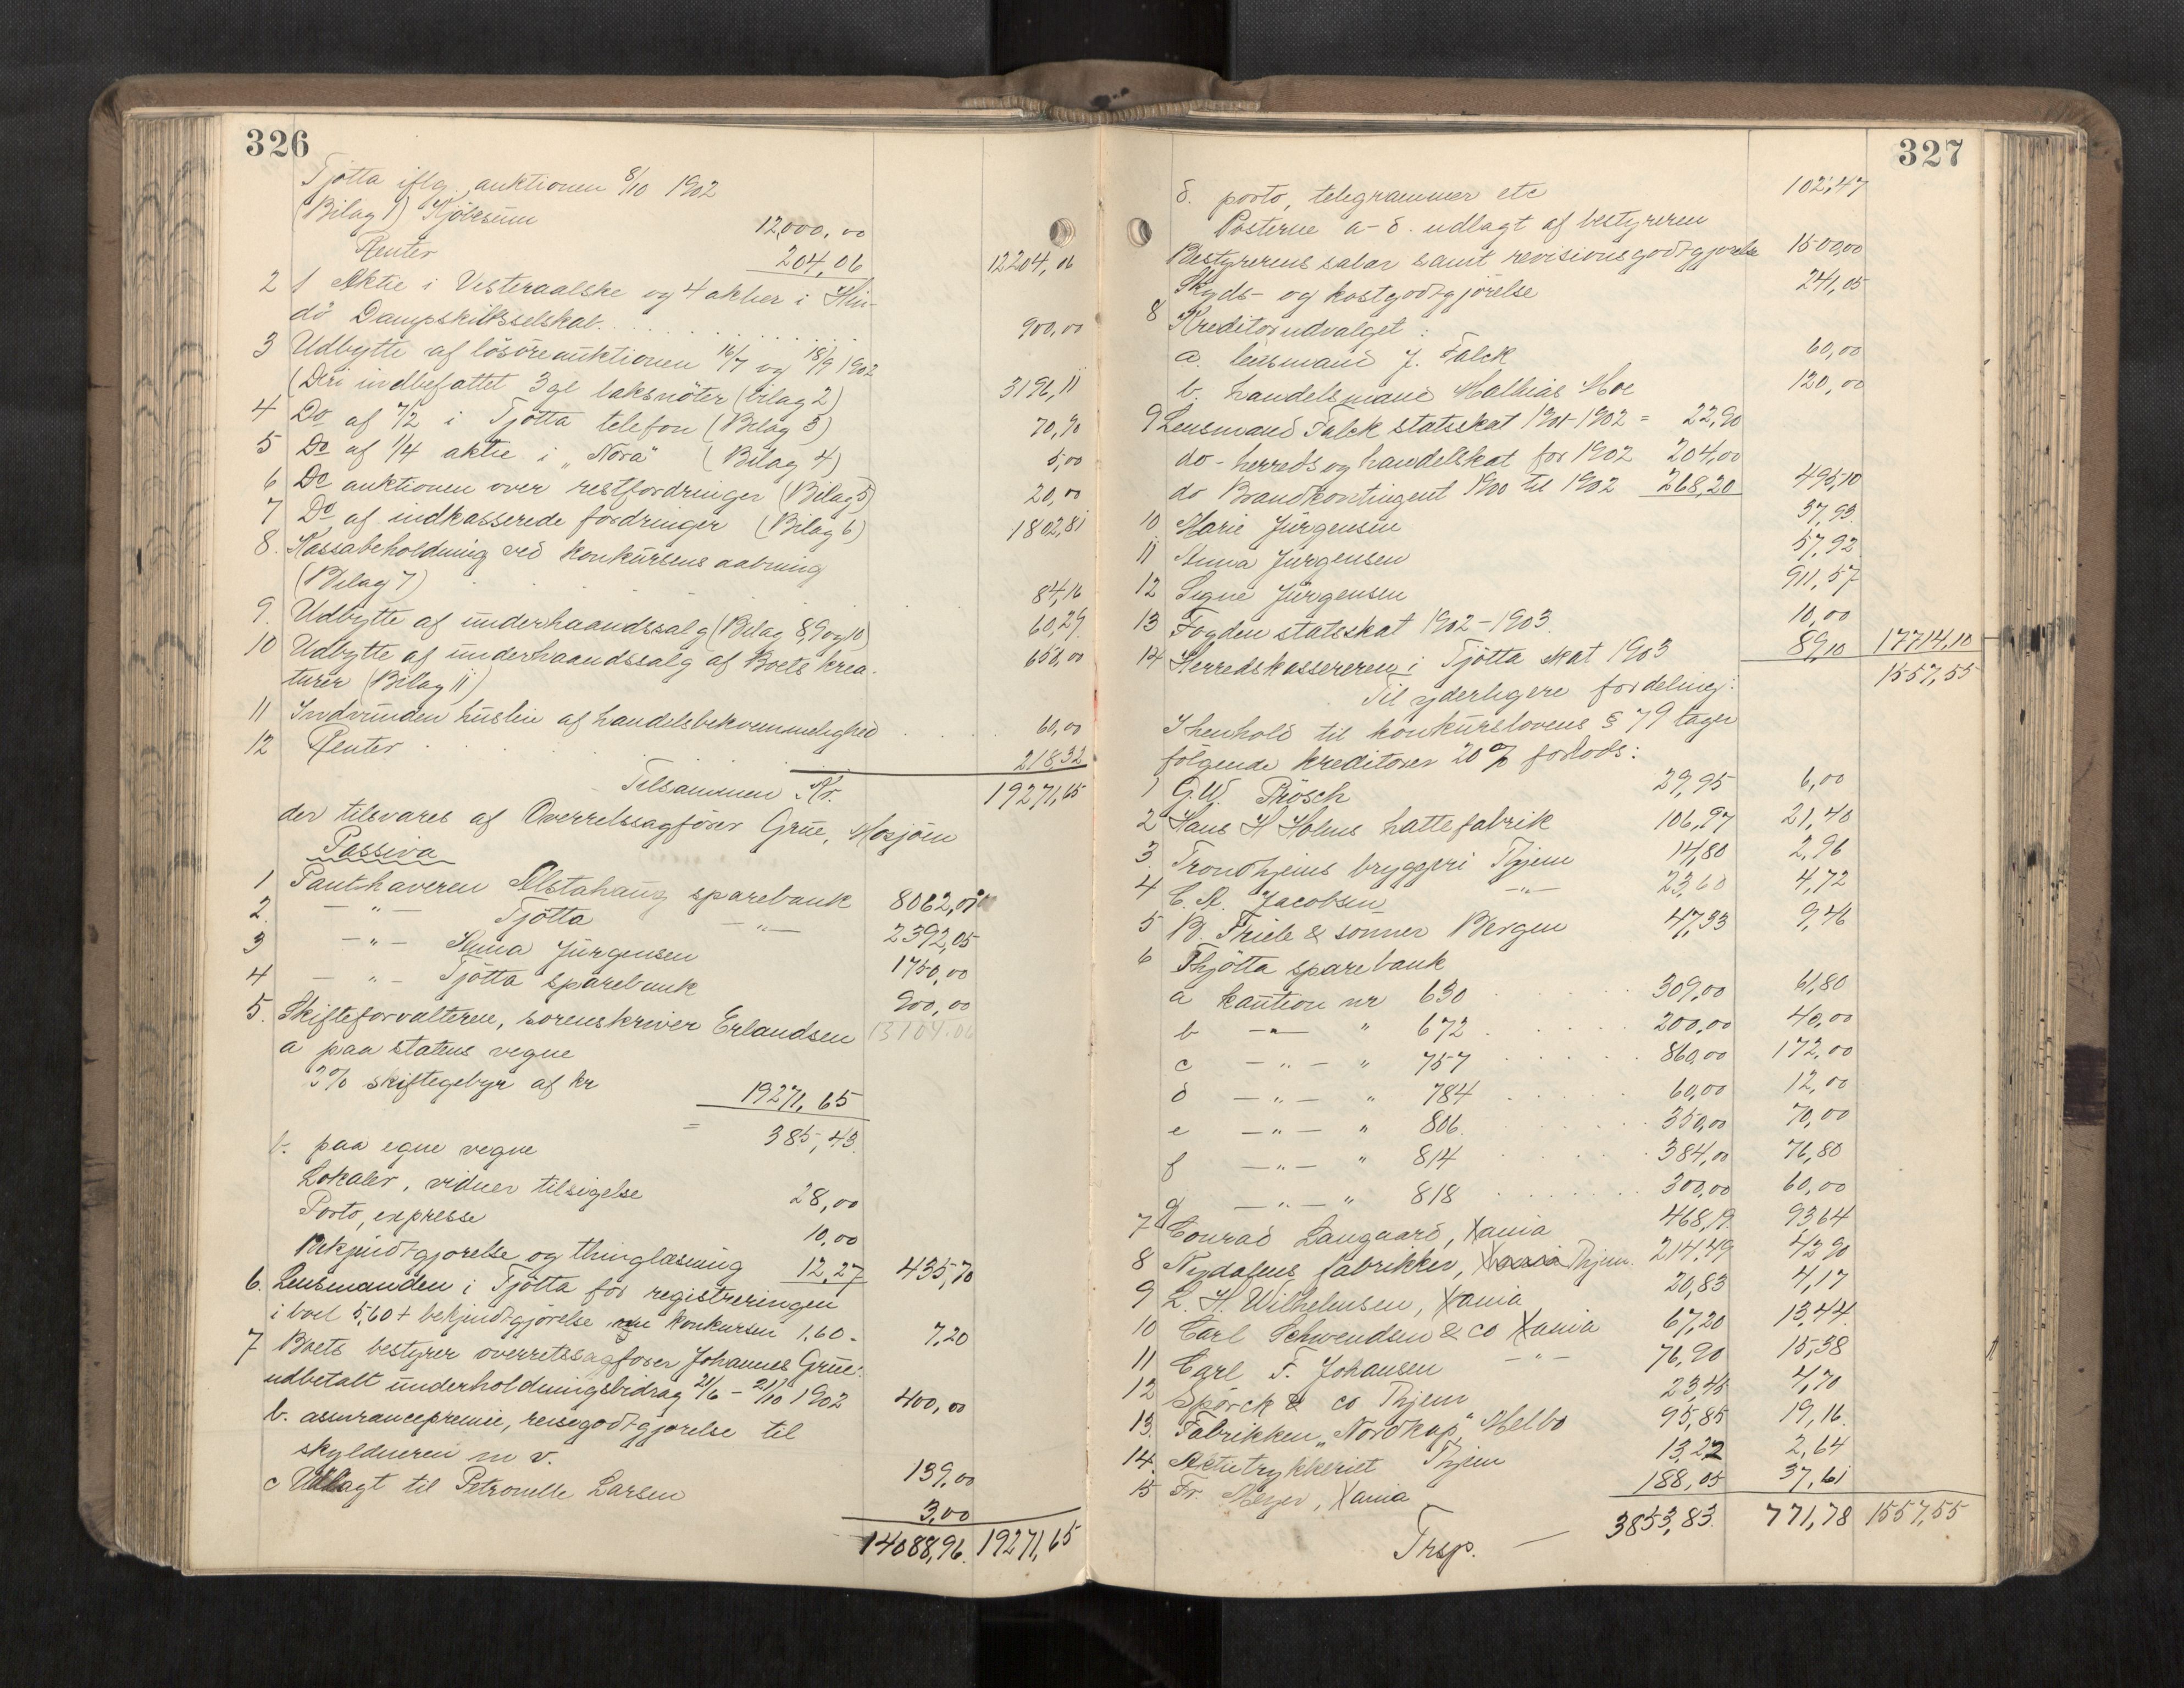 326
Tjötta iflg. auktionen 8/10 1902
(Bilag 1) Kjöbesum 12,000,00
Renter 204,06 12204,06
2 1 Aktie i Vesteraalske og 4 aktier i Hin-
dö Dampskibsselskab. 900,00
3 Udbytte af lösöreauktionen 16/7 og 18/9 1902
(Deri indbefattet 3 gl laksnöter (bilag 2) 3196,11
4 Do af 7/2 i Tjötta telefon (Bilag 3) 70,90
5 Do af 1/4 aktie i "Nora" (Bilag 4) 5,00
6 Do auktionen over restfordringer (Bilag 5) 20,00
7 Do af indkasserede fordringer (Bilag 6) 1802,81
8. Kassabeholdning ved konkursens aabning
(Bilag 7) 84,16
9. Udbytte af underhaandssalg (Bilag 8,9 og 10) 60,29
10 Udbytte af underhaandssalg af Boets krea-
turer (Bilag 11) 650,00
11 Indvunden husleie af handelsbekvemmelighed 60,00
12 Renter 218,32
Tilsammen Kr. 19271,65
der tilsvares af Overretssagförer Grüe, Mosjöen
Passiva
1 Panthaveren Alstahaug sparebank 8062,01
2. — " — Tjötta — " — 2392,05
3 — " — Anna Jürgensen 1750,00
4 — " — Tjötta sparebank 900,00
5. Skifteforvalteren, sorenskriver Erlandsen 13104.06
a paa statens vegne
2% skiftegebyr af kr 19271,65
= 385,43.
b. paa egne vegne
Lokaler, vidner tilsigelse 28,00
Porto, expresse 10,00
Bekjendtgjorelse og thinglæsning 12,27 435,70
6. Lensmanden i Tjötta for registreringen
i boet 5,60 + bekjendtgjörelse om konkursen 1,60 = 7,20
7 Boets bestyrer overretssagförer Johannes Grüe:
udbetalt underholdningsbidrag 21/6 - 21/10 1902 400,00
b. assurancepremie, reisegodtgjorelse til
skyldneren m v. 139,00
c Udlagt til Petronelle Larsen 3,00
14088,96. 19271,65
327
d. porto, telegrammer etc 102,47
Posterne a-d. udlagt af bestyreren
Bestyrerens salar samt revisionsgodtgjorelse 1500,00
Skyds- og kostgodtgjörelse 241,05
8 Kreditorudvalget:
a. lensmand J. Falck 60,00
b. handelsmand Mathias Moe 120,00
9 Lensmand Falck statsskat 1901-1902 = 22,90
do - herreds og handelskat for 1902 204,00
do Brandkontingent 1900 til 1902 268,20 495,10
10. Marie Jürgensen 37,93.
11 Anna Jürgensen 57,92
12 Signe Jürgensen 911,57
13 Fogden statsskat 1902-1903. 10,00
14 Herredskassereren i Tjötta skat 1903 89,10 17714,10
Til yderligere fordeling: 1557,55
I henhold til konkurslovens § 79 tager
fölgende kreditorer 20% forlods:
1 G.W. Prösch 29,95 6,00
2 Hans H Holms hattefabrik 106,97 21,40
3. Trondhjems bryggeri Thjem 14,80 2,96
4 C. A. Jacobsen — " — 23,60 4,72
5 B. Friele & sonner Bergen 47,33 9,46
6 Thjötta sparebank
a kaution nr 630 309,00 61,80
b — " — " 672 200,00 40,00
c — " — " 757 860,00 172,00
d — " — " 784 60,00 12,00
e — " — " 806. 350,00 70,00
f — " — " 814 384,00 76,80
g — " — " 818 300,00 60,00
7 Conrad Langaard, Xania 468,19. 93,64
8 Nydalens fabrikker, Xania Thjem. 214,49 42,90
9 L. H. Wilhelmsen, Xania 20,83 4,17
10 Carl Schwendsen & co Xania 67,20 13,44.
11 Carl F. Johansen — " — 76,90 15,38
12 Spörck & co Thjem 23,45 4,70
13. Fabrikken "Nordkap", Melbo 95,85 19,16.
14. Actietrykkeriet Thjem 13,22 2,64
15 Fr. Meyer, Xania 188,05 37,61
Trsp. — 3853,83. 771,78 1557,55